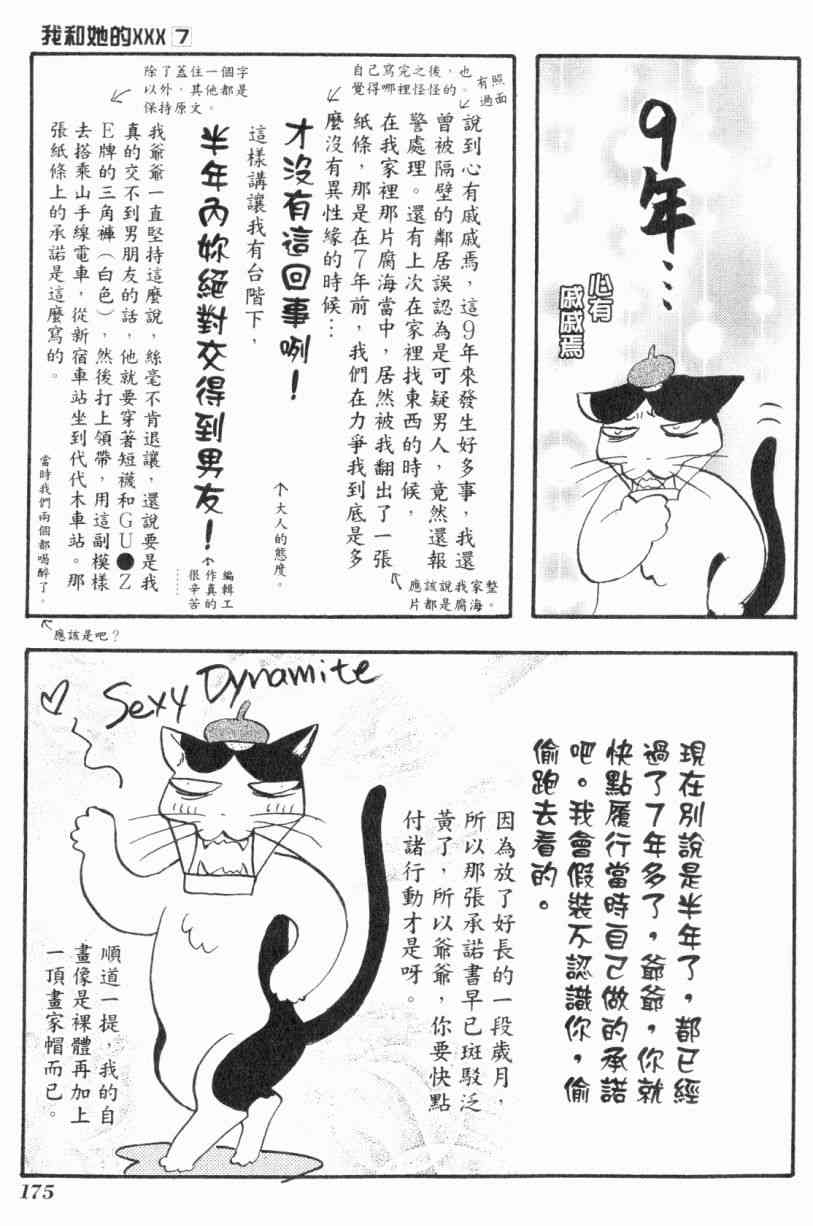 我和她的XXX 7
9年…
心有
戚戚焉
自己寫完之後，也
覺得哪裡怪怪的。
有照
過面
說到心有戚戚焉，這9年來發生好多事，我還
曾被隔壁的鄰居誤認為是可疑男人，竟然還報
警處理。還有上次在家裡找東西的時候，
在我家裡那片腐海當中，居然被我翻出了一張
紙條，那是在7年前，我們在力爭我到底是多
麼沒有異性緣的時候…
應該說是我家整
片都是腐海。
才沒有這回事咧！
↑大人的態度。
這樣講讓我有台階下，
半年內妳絕對交得到男友！
編輯工
作真的
很辛苦
……
除了蓋住一個字
以外，其他都是
保持原文。
我爺爺一直堅持這麼說，絲毫不肯退讓，還說要是我
真的交不到男朋友的話，他就要穿著短襪和GU●Z
E牌的三角褲（白色），然後打上領帶，用這副模樣
去搭乘山手線電車，從新宿車站坐到代代木車站。那
張紙條上的承諾是這麼寫的。
當時我們兩個都喝醉了。
應該是吧？
現在別說是半年了，都已經
過了7年多了，爺爺，你就
快點履行當時自己做的承諾
吧。我會假裝不認識你，偷
偷跑去看的。
因為放了好長的一段歲月，
所以那張承諾書早已斑駁泛
黃了，所以爺爺，你要快點
付諸行動才是呀。
Sexy Dynamite
順道一提，我的自
畫像是裸體再加上
一頂畫家帽而已。
175